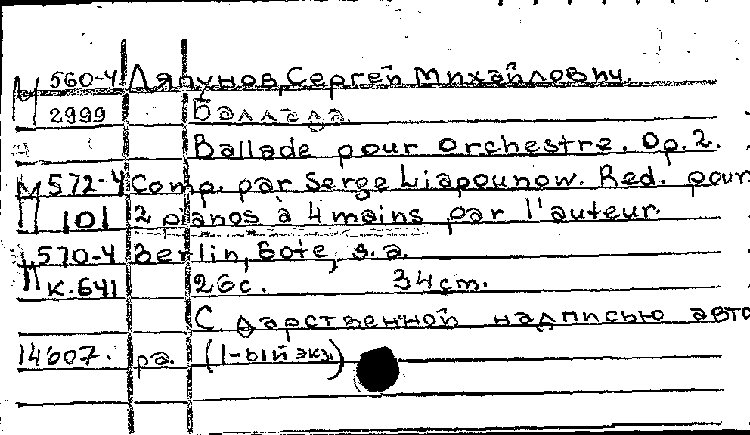 М 560-4 Ляпунов, Сергей Михайлович.
2999 Баллада.
Ballade pour orchestre. Op. 2.
М 572-4 Comp. par Serge Liapounow. Red. pour
101 2 pianos à 4 mains par l'auteur.
570-4 Berlin, Bote, s.a.
К.641 26с. 34cm.
С дарственной надписью авто
14607. ра. (1-ый экз)